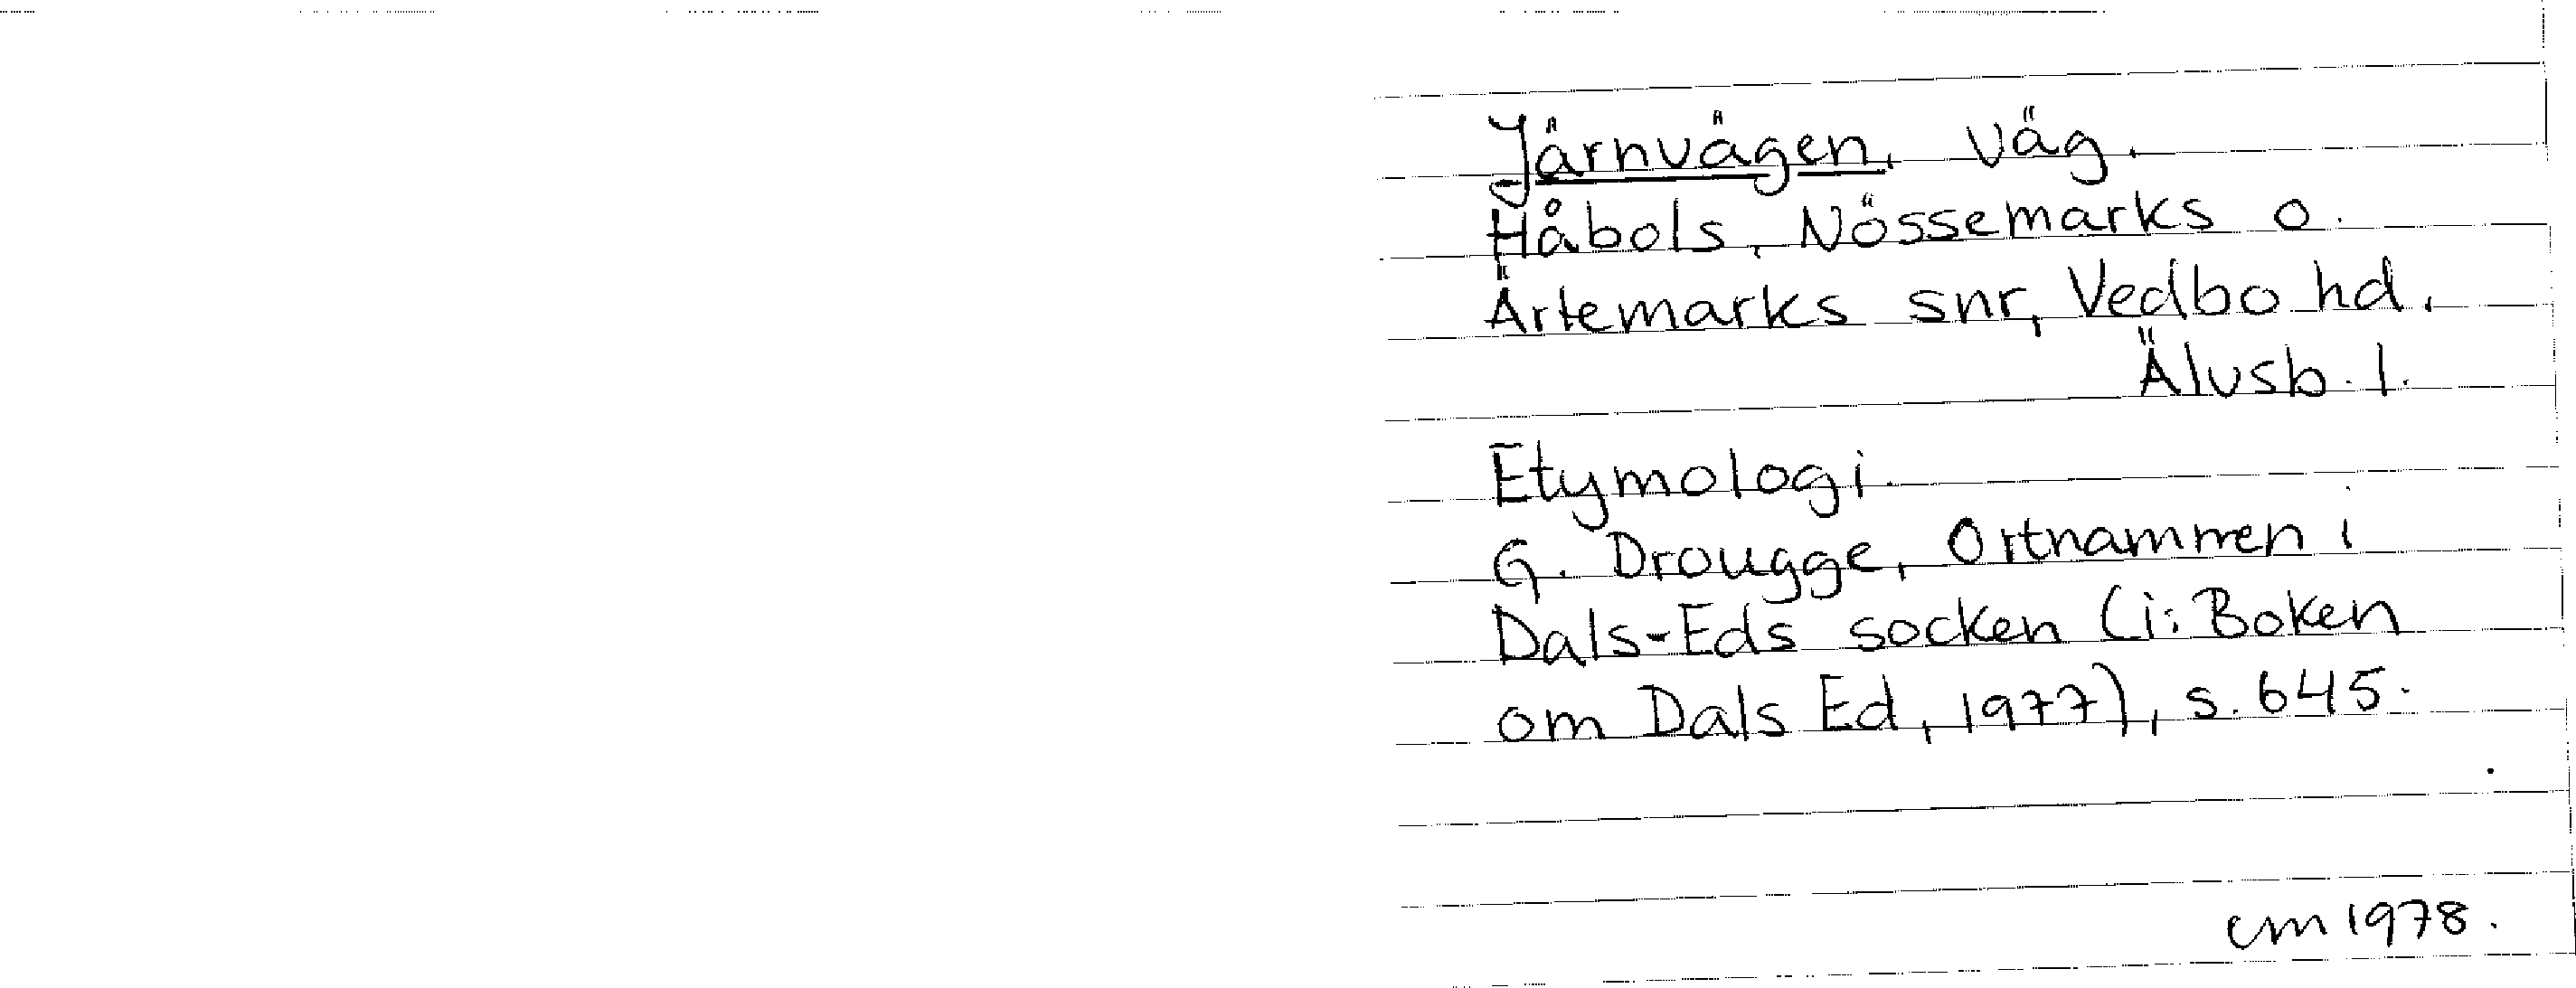 Järnvägen, väg.
Håbols, Nössemarks o.
Ärtemarks snr, Vedbo hd.
Älvsb. l.
Etymologi.
G. Drougge, Ortnamnen i
Dals-Eds socken (i: Boken
om Dals Ed, 1977), s. 645.
cm 1978.